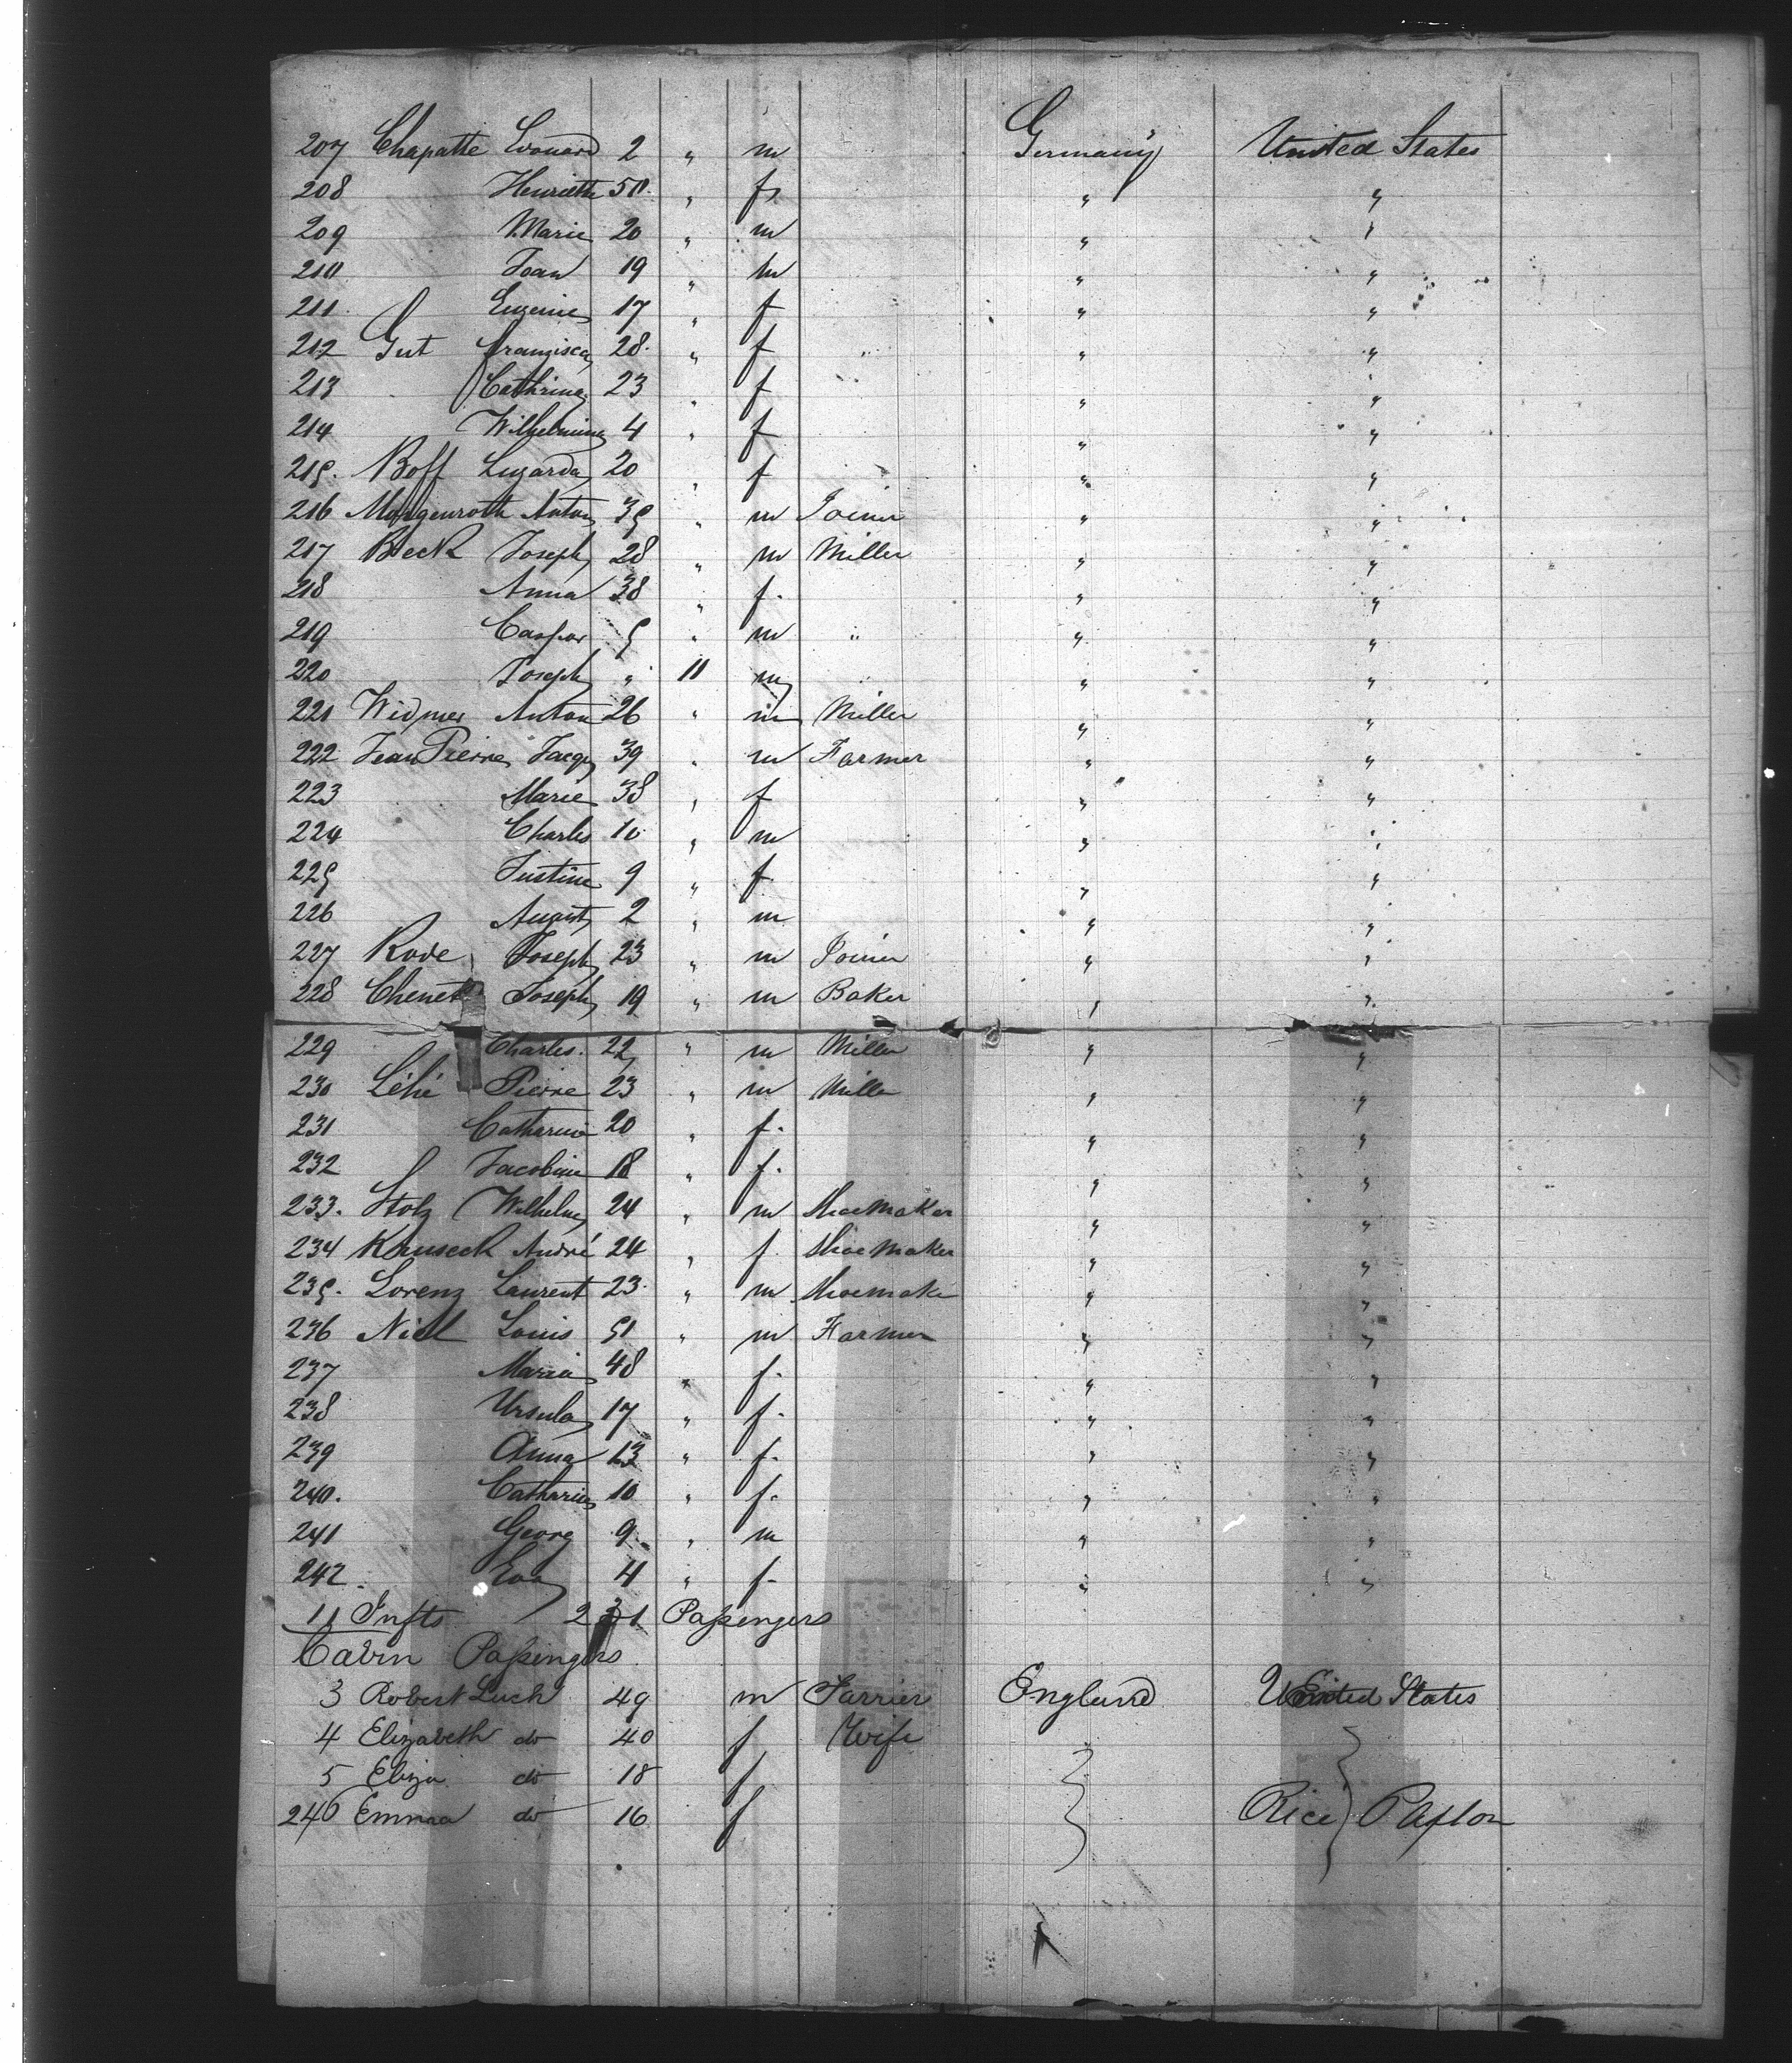 207 Chapatte Edouard 2 " m Germany United States
208 Henriette 50 " f " "
209 Marie 20 " m " "
210 Jean 19 " m " "
211 Eugenie 17 " f " "
212 Gut Franzisca 28 " f " " "
213 Cathrine 23 " f " "
214 Wilhelmina 4 " f " "
215. Boff Luzarda 20 " f " "
216 Morgenroth Anton 35 " m Joiner " "
217 Beck Joseph 28 " m Miller " "
218 Anna 38 " f. " "
219 Caspar 5 " m " " "
220 Joseph " 11 m " " "
221 Widmer Anton 26 " m Miller " "
222 Jean Pierre Jacq 39 " m Farmer " "
223 Marie 38 " f " "
224 Charles 10 " m " "
225 Justine 9 " f " "
226 August 2 " m " "
227 Rode Joseph 23 " m Joiner " "
228 Chenet Joseph 19 " m Baker " "
229 Charles. 22 " m Miller " "
230 Léhé Pierre 23 " m Miller " "
231 Catharine 20 " f. " "
232 Jacobine 18 " f. " "
233. Stolz Wilhelm 24 " m Shoemaker " "
234 Kruseck André 24 " f. Shoemaker " "
235. Lorenz Laurent 23. " m Shoemake " "
236 Niel Louis 51 " m Farmer " "
237 Maria 48 " f. " "
238 Ursula 17 " f. " "
239 Anna 13 " f. " "
240. Catharine 10 " f. " "
241 Georg 9. " m " "
242. Eva 4 " f. " "
11 Infts 231 Passengers
Cabin Passingers
3 Robert Luch 49 m Farrier England United States
4 Elizabeth do 40 f Wife
5 Eliza do 18 f
246 Emma do 16 f Rice Paxton